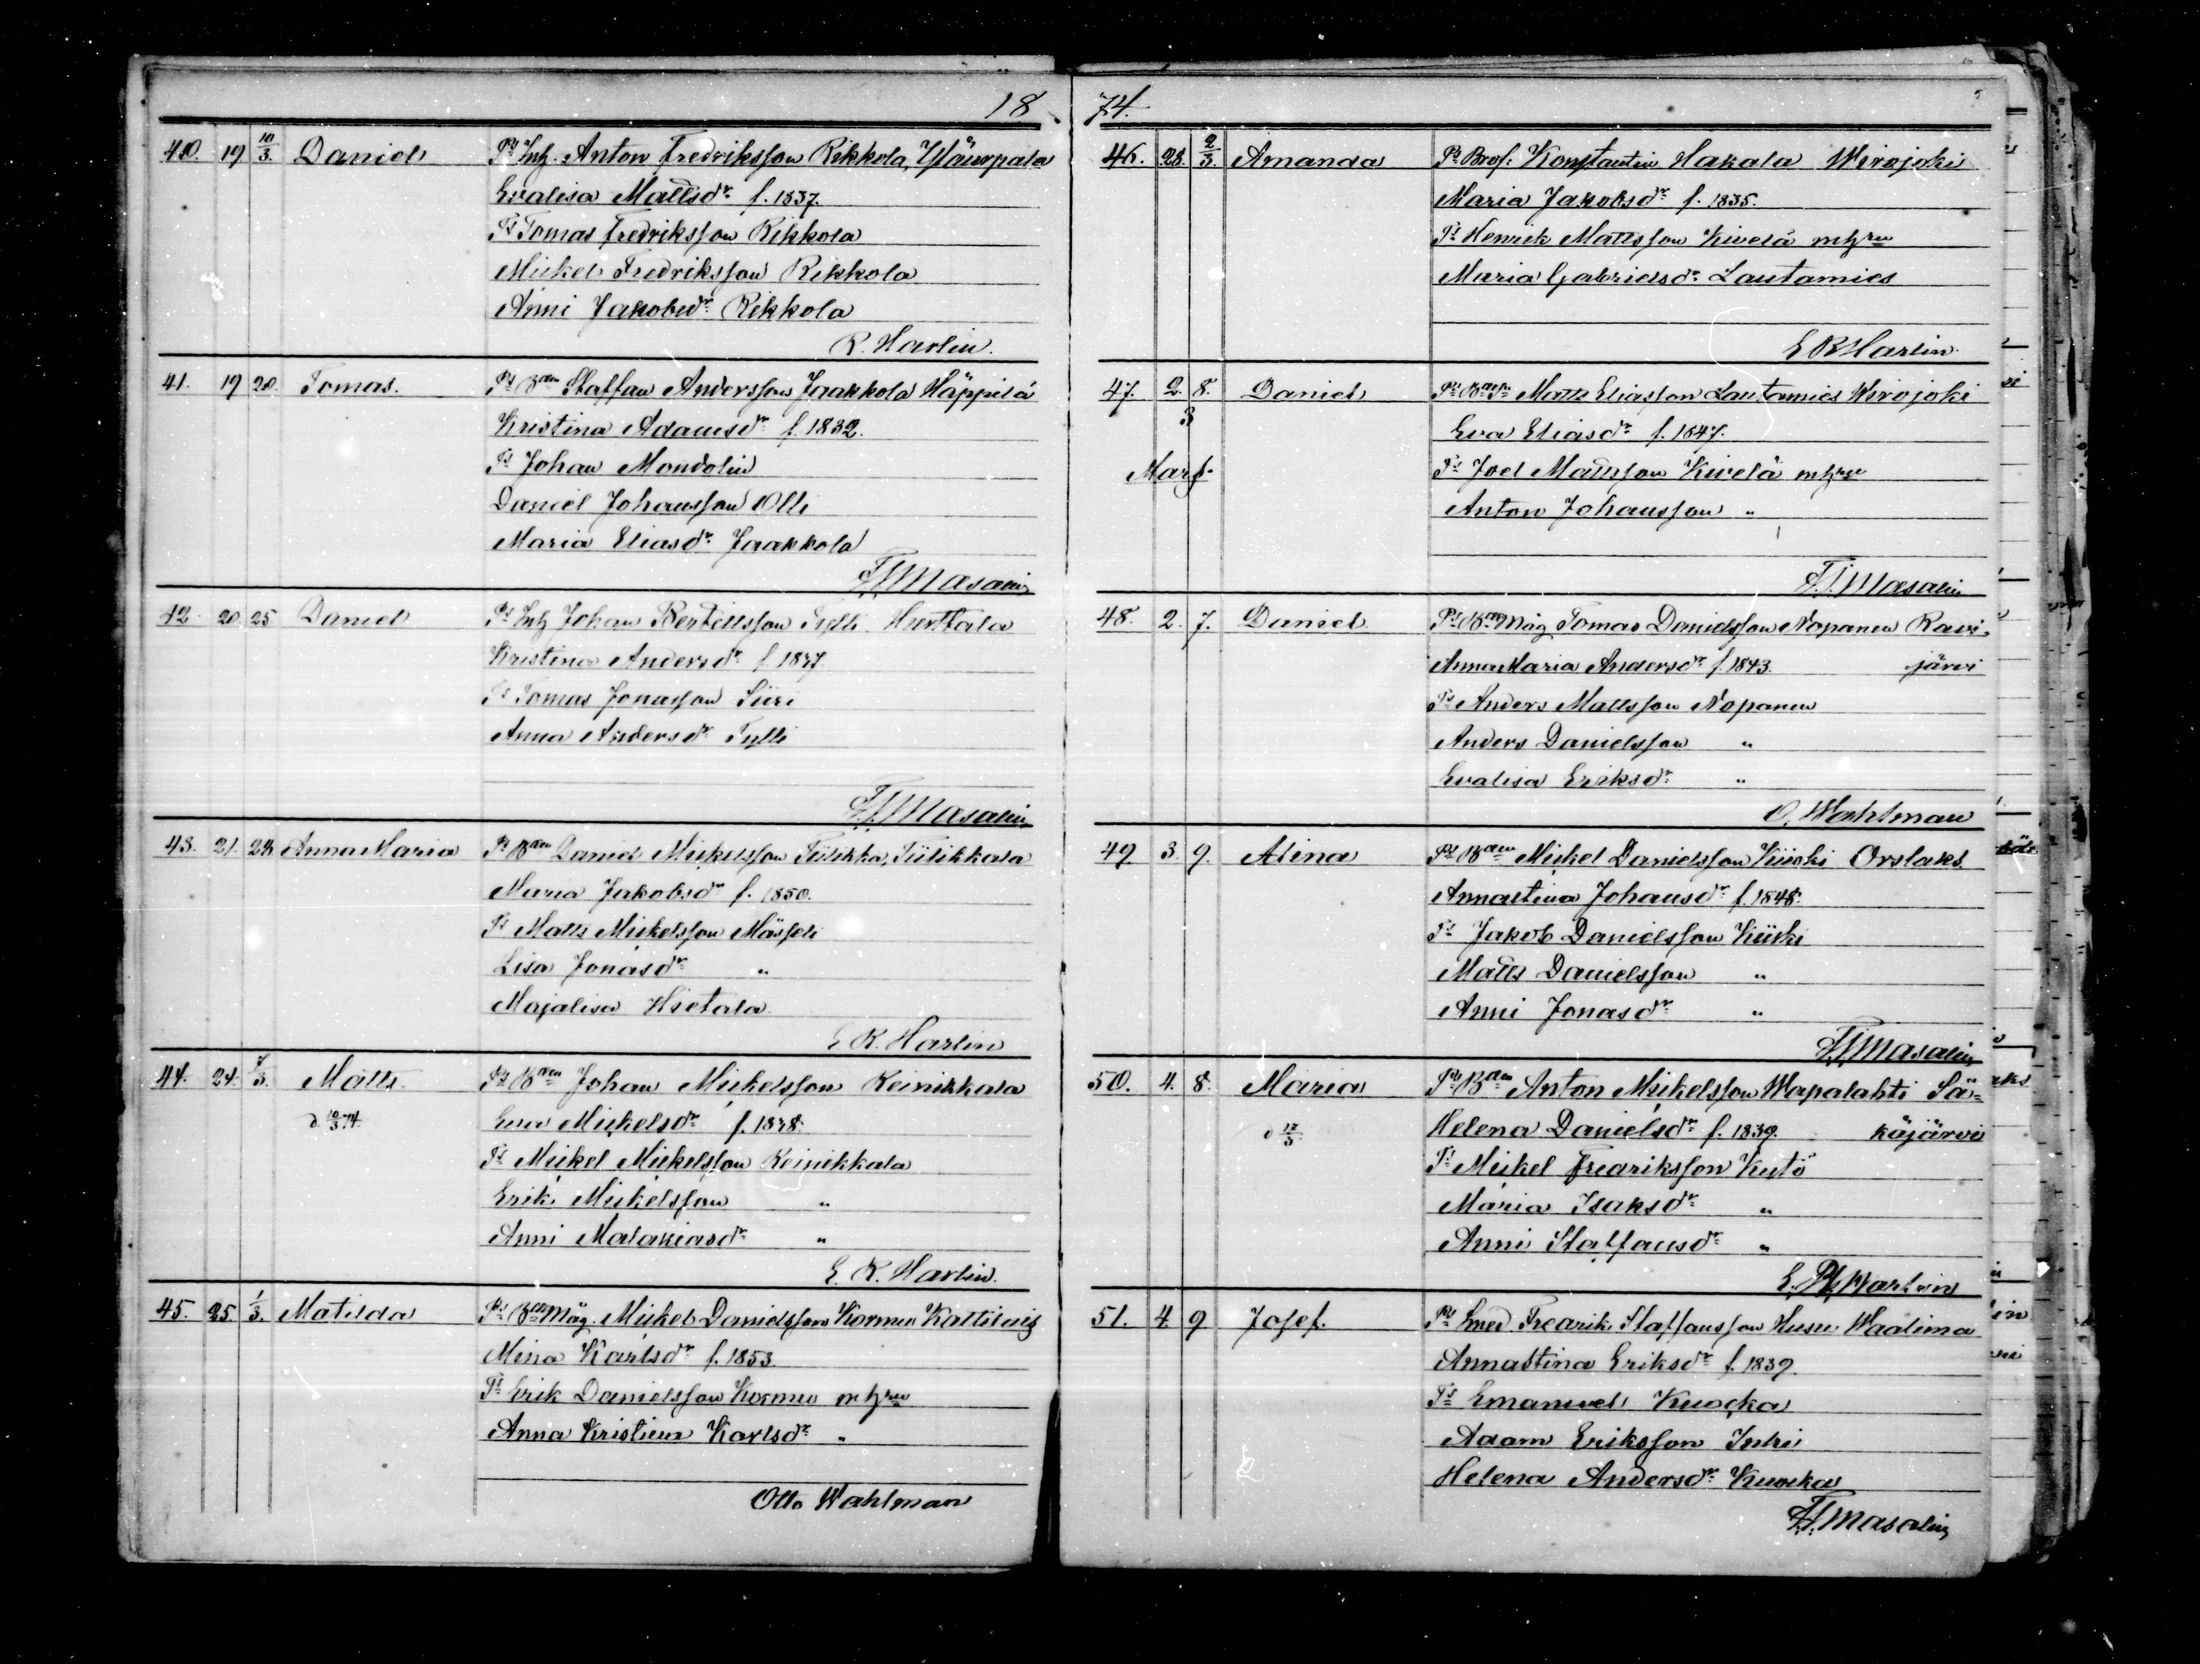 18
40. 19 10/3. Daniel Ps Inh. Anton Fredriksson Rikkola, Yläurpala
Evalisa Mattsdr f. 1837.
Ts Tomas Fredriksson Rikkola
Mickel Fredriksson Rikkola
Anni Jakobsdr Rikkola
R. Harlin.
41. 19 20. Tomas. Ps Bden Staffan Andersson Jaakkola Häppilä
Kristina Adamsdr f. 1832.
Ts Johan Mondolin
Daniel Johansson Olli
Maria Eliasdr Jaakkola
F.J. Masalin
42. 20. 25 Daniel Ps Inh Johan Bertillsson Tylli Hurttala
Kristina Andersdr f 1837.
Ts Tomas Jonasson Siiri
Anna Andersdr Tylli
F.J. Masalin
43. 21. 24 Anna Maria Ps Bden Daniel Mickelsson Tiilikka, Tiilikkala
Maria Jakobsdr f. 1850.
Ts Matts Mickelsson Mässeli
Lisa Jonasdr "
Majalisa Hietala
E R. Harlin
44. 24. 7/3. Matts. Ps Bden Johan Mickelsson Reinikkala
d. 10/3 74. Eva Mickelsdr f. 1838.
Ts Mickel Mickelsson Reinikkala
Erik Mickelsson "
Anni Malakiasdr "
E. R. Harlin.
45. 25. 1/3. Matilda Ps Bdemåg. Mickel Daniels​son Kormu Kattilais
Mina Karlsdr f. 1853.
Ts Erik Danielsson Kormu m hru
Anna Kristina Karlsdr "
Otto Wahlman
74.
46. 28. 2/3. Amanda Ps Brof. Konstantin Hakala Wirojoki
Maria Jakobsdr f. 1835.
Ts Henrik Mattsson Kivelä m hru
Maria Gabrielsdr Lautamies
E R Harlin.
47. 2. 8. Daniel Ps Bdesn Matts Eliasson Lautamies Wirojoki
3 Eva Eliasdr f. 1847.
Mars. Ts Joel Mattsson Kivelä m hru
Anton Johansson "
F.J. Masalin
48. 2. 7. Daniel Ps Bdemåg Tomas Danielsson Nopanen Ravi-
Anna Maria Andersdr f. 1843. järvi
Ts Anders Mattsson Nopanen
Anders Danielsson "
Evalisa Eriksdr "
O. Wahlman
49 3. 9. Alina Ps Bden Mickel Danielsson Kiiski Orslaks
Annastina Johansdr f. 1848.
Ts Jakob Danielsson Kiiski
Matts Danielsson "
Anni Jonasdr "
F.J. Masalin
50. 4. 8. Maria Ps Bden Anton Mickelsson Wapalahti Sä-
d 17/3. Helena Danielsdr f. 1839. käjärvi
Ts Mickel Fredriksson Kytö
Maria Isaksdr "
Anni Staffansdr "
E. R. Harlin
51. 4. 9 Josef. Ps Fredrik Staffansson Husu Waalima
Annastina Eriksdr f. 1839.
Ts Emanuel Kuokka
Adam Eriksson Inki
Helena Andersdr Kuokka
F.J. Masalin